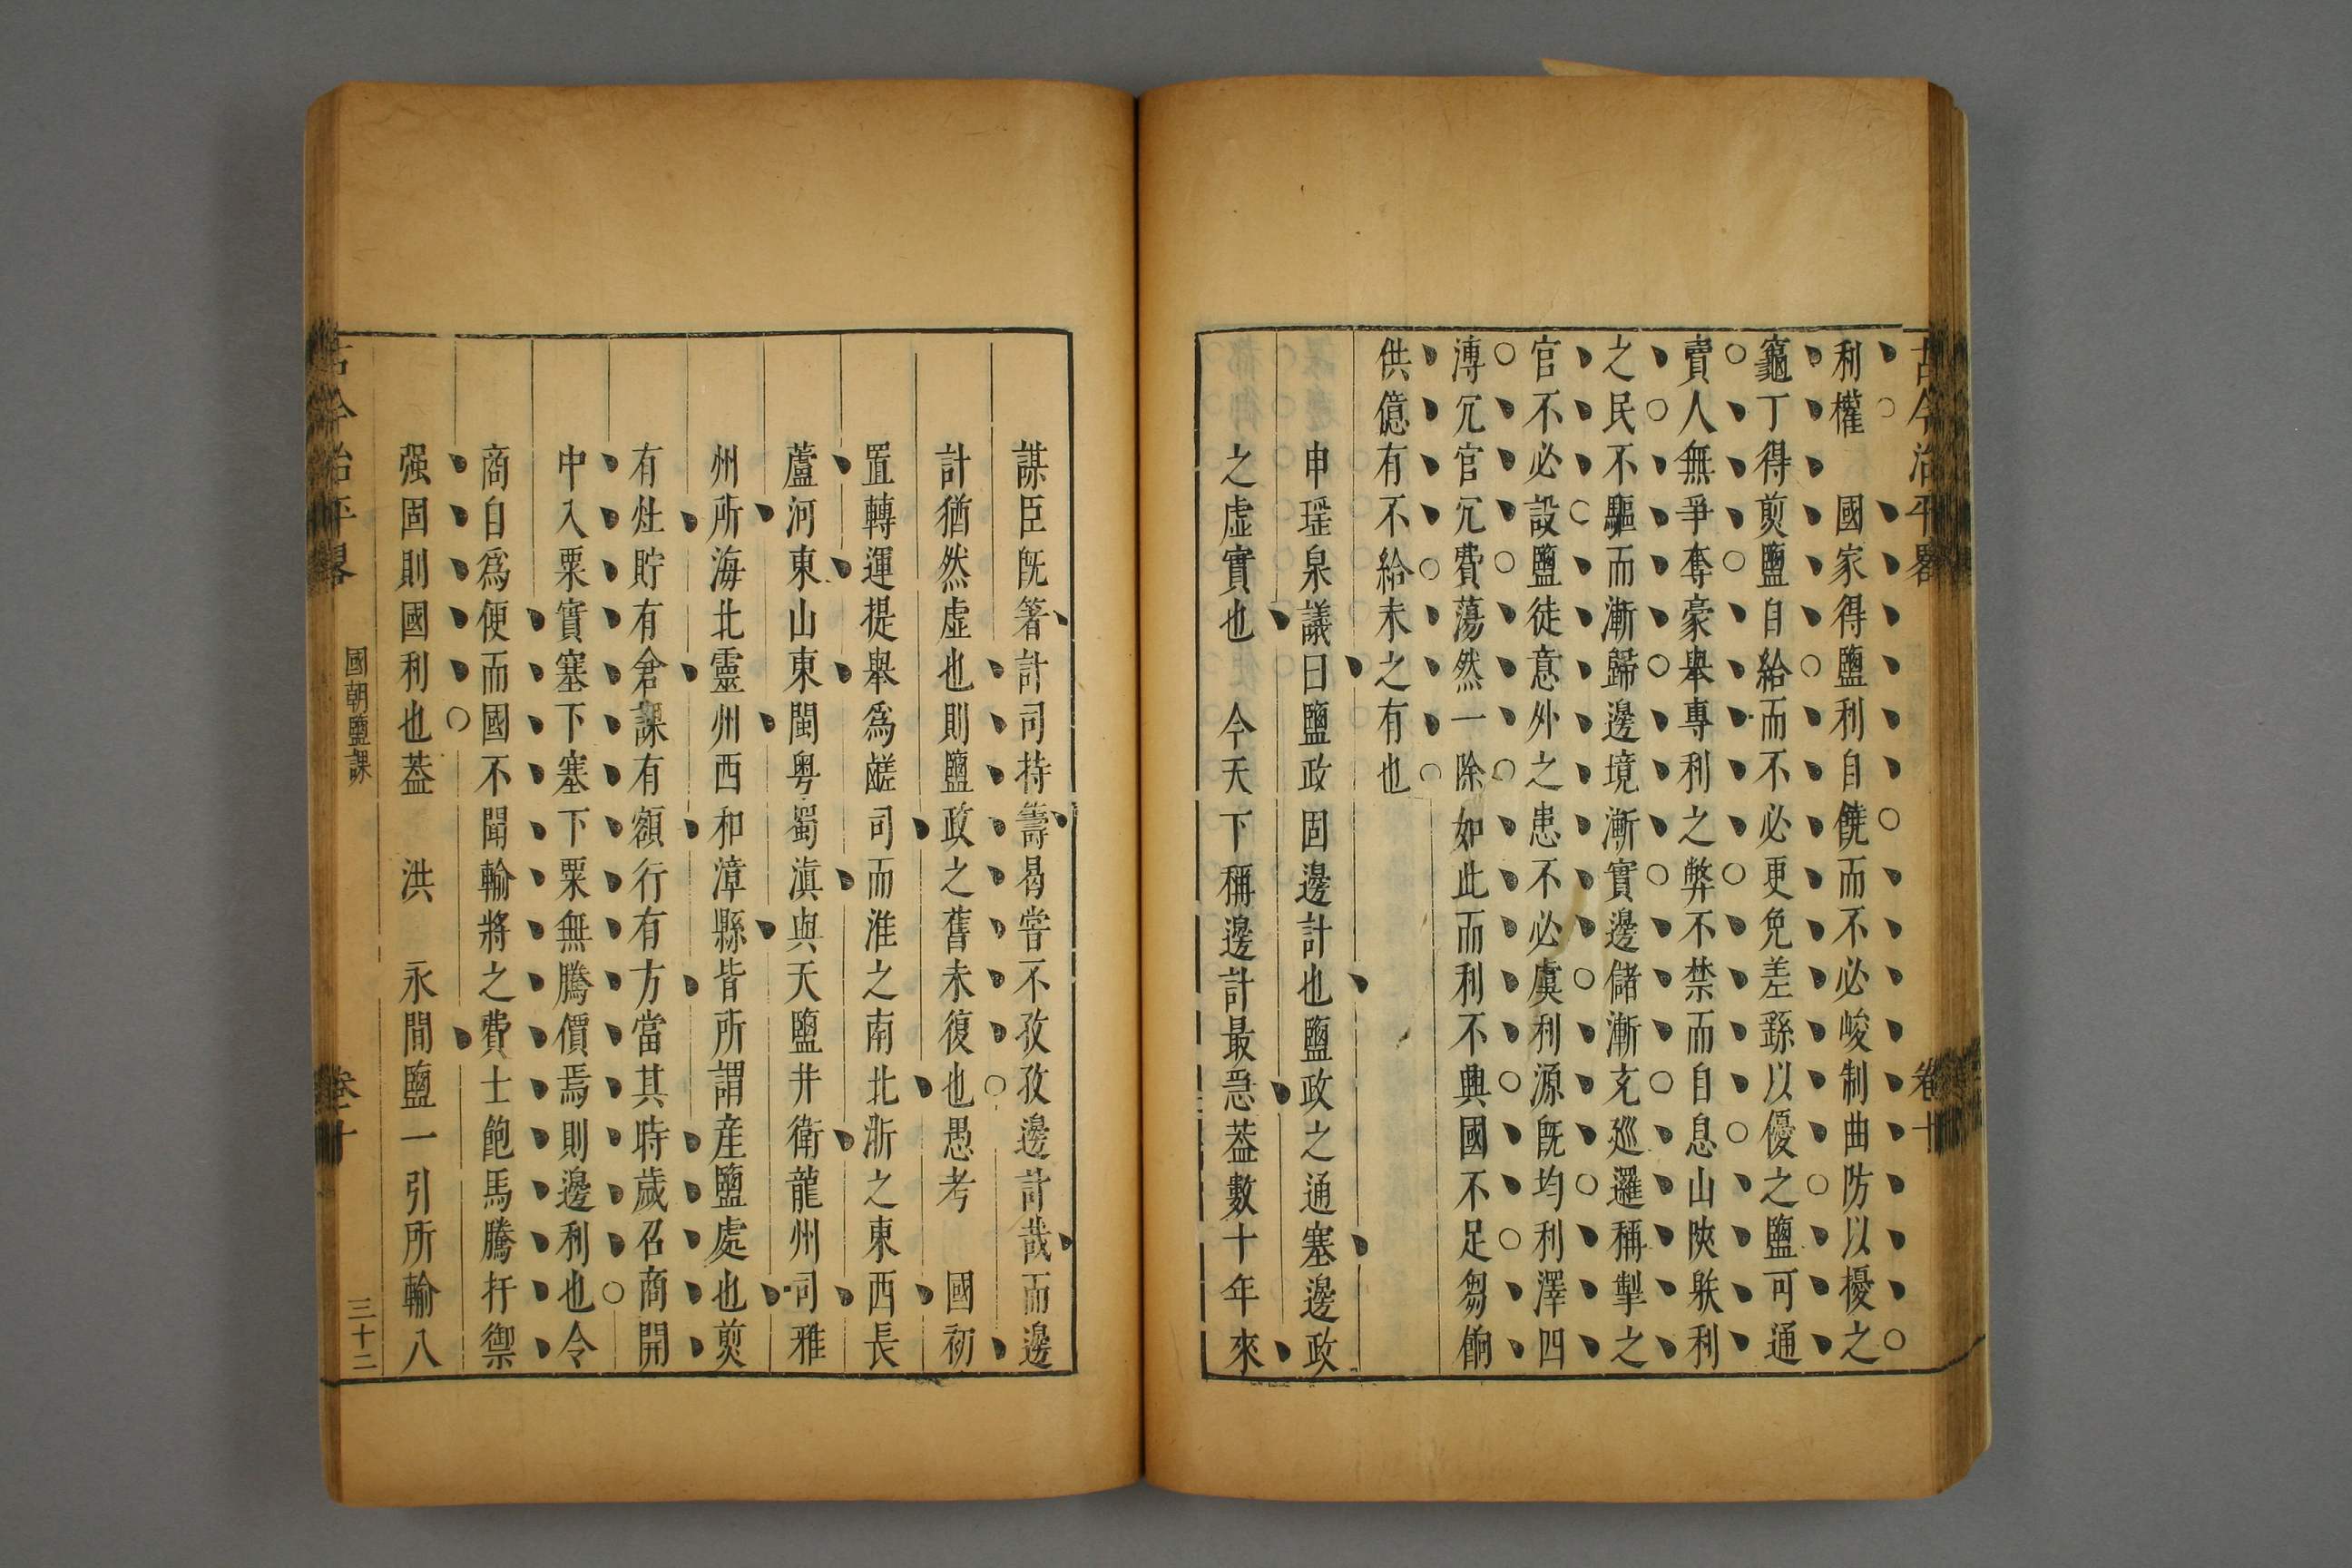 古今治平畧 卷十
利權 國家得鹽利自饒而不必峻制曲防以擾之
竈丁得煎鹽自給而不必更免差繇以優之鹽可通
賣人無爭奪豪舉專利之弊不禁而自息山陝躲利
之民不驅而漸歸邊境漸實邊儲漸充巡邏稱掣之
官不必設鹽徒意外之患不必虞利源旣均利澤四
溥冗官冗費蕩然一除如此而利不興國不足芻餉
供億有不給未之有也
申瑶泉議曰鹽政固邊計也鹽政之通塞邊政
之虛實也 今天下稱邊計最急葢數十年來
謀臣旣箸計司持籌曷嘗不孜孜邊計哉而邊
計猶然虛也則鹽政之舊未復也愚考 國初
置轉運提舉爲鹺司而淮之南北浙之東西長
蘆河東山東閩粤蜀滇與天鹽井衛龍州司雅
州所海北靈州西和漳縣皆所謂産鹽處也煎
有灶貯有倉課有額行有方當其時歲召商開
中入粟實塞下塞下粟無騰價焉則邊利也令
商自爲便而國不聞輸將之費士飽馬騰扞禦
强固則國利也葢 洪 永間鹽一引所輸八
古今治平畧 國朝鹽課 卷十 三十二